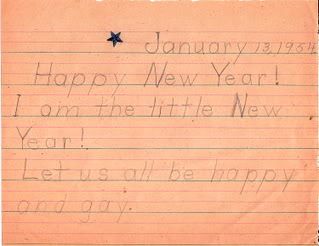 January 13, 1964
Happy New Year!
I am the little New
Year!
Let us all be happy
and gay.